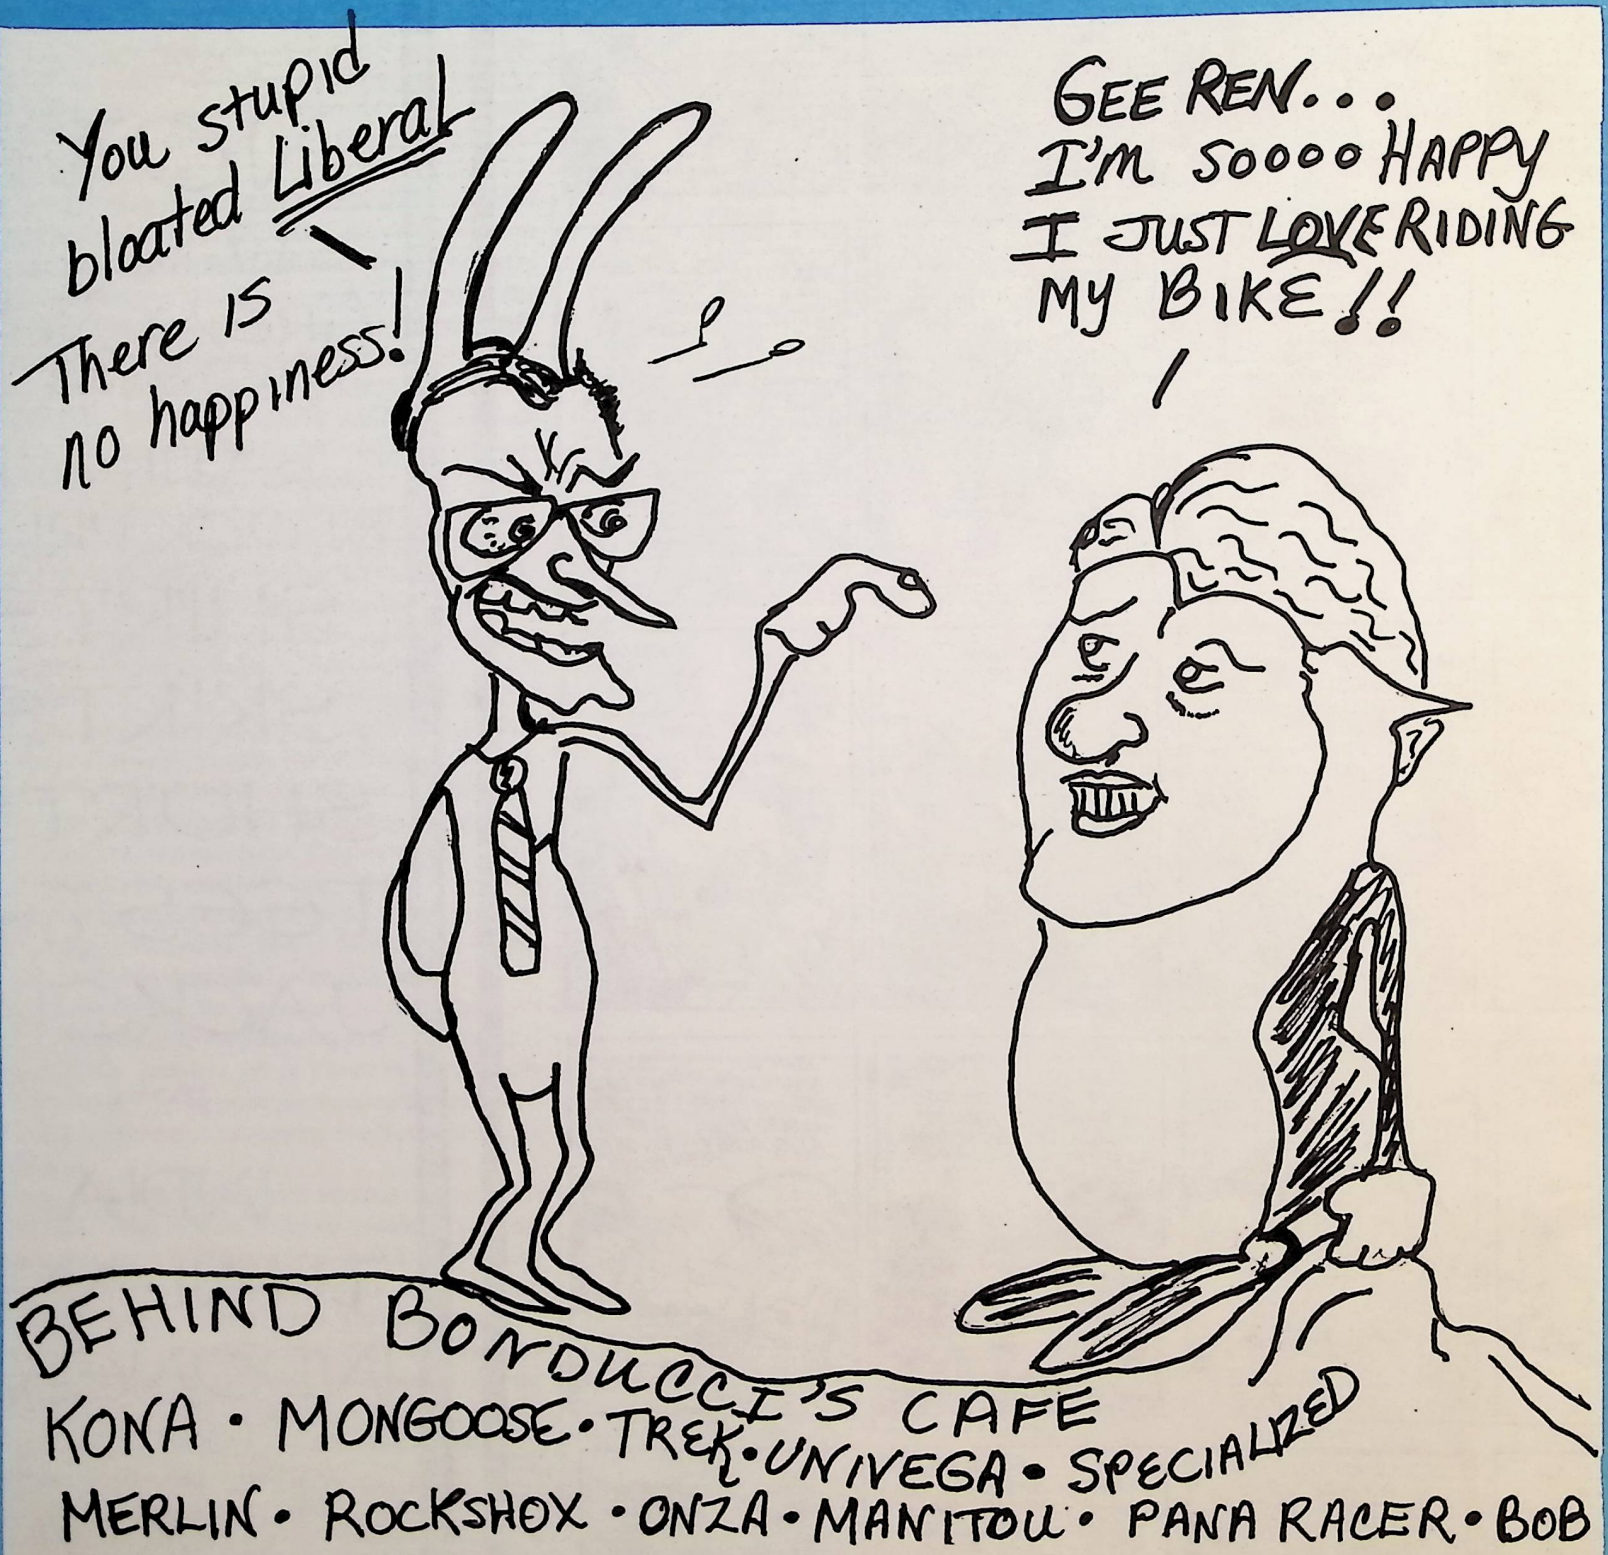 You stupid
bloated Liberal
There is
no happiness!
GEE REN...
I'M SOOOO HAPPY
I JUST LOVE RIDING
MY BIKE!!
BEHIND BONDUCCI'S CAFE
KONA • MONGOOSE • TREK • UNIVEGA • SPECIALIZED
MERLIN • ROCKSHOX • ONZA • MANITOU • PANA RACER • BOB